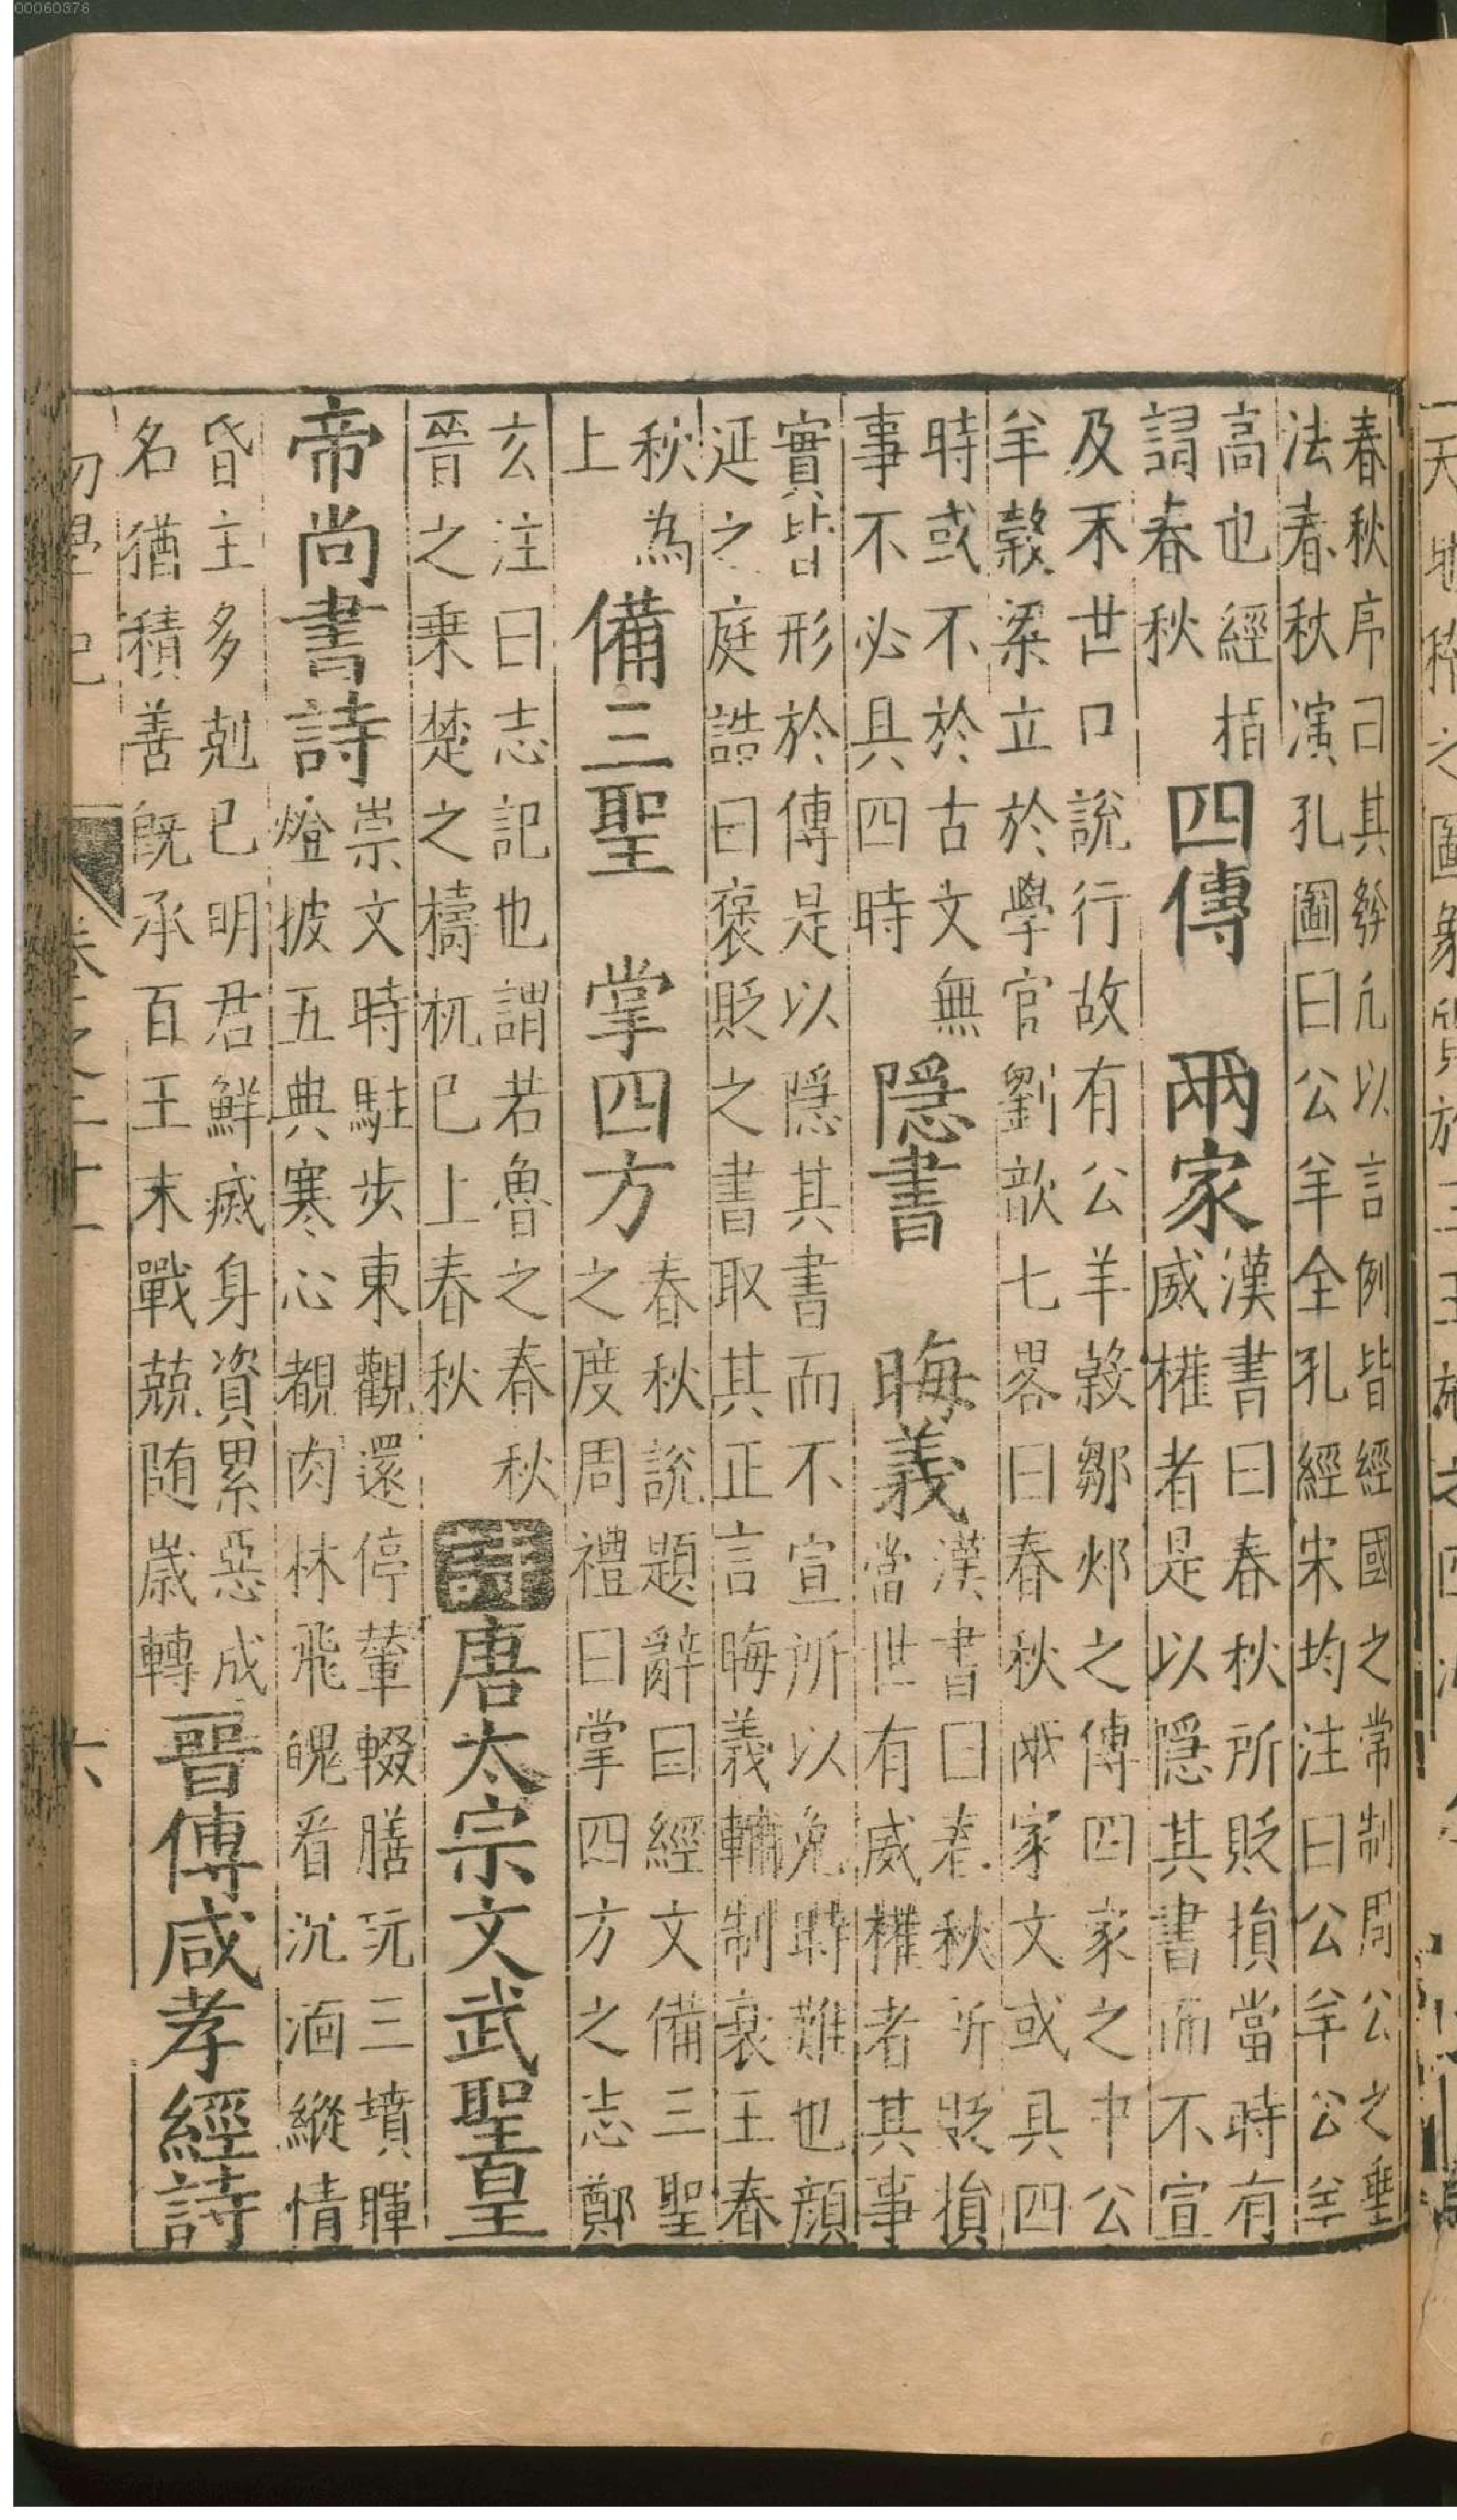 春秋序曰其發凡以言例皆經國之常制周公之垂
法春秋演孔圖曰公羊全孔經宋均注曰公羊公羊
高也經指
謂春秋
四傳　兩家
漢書曰春秋所貶損當時有
威權者是以隱其書而不宣
及末世口說行故有公羊穀鄒郟之傳四家之中公
羊穀梁立於學官劉歆七畧曰春秋兩家文或具四
時或不於古文無
事不必具四時
隱書　晦義
漢書曰春秋所貶損
當世有威權者其事
實皆形於傳是以隱其書而不宣所以免時難也顏
延之庭誥曰褒貶之書取其正言晦義輔制衰王春
秋為
上
備三聖　掌四方
春秋說題辭曰經文備三聖
之度周禮曰掌四方之志鄭
玄注曰志記也謂若魯之春秋
晉之乗楚之檮杌已上春秋
詩
唐太宗文武聖皇
帝尚書詩
崇文時駐步東觀還停輦輟膳玩三墳暉
燈披五典寒心覩肉林飛魄看沉湎縱情
昏主多剋已明君鮮滅身資累惡成
名猶積善既承百王末戰兢随歲轉
晉傅咸孝經詩
六
00060378